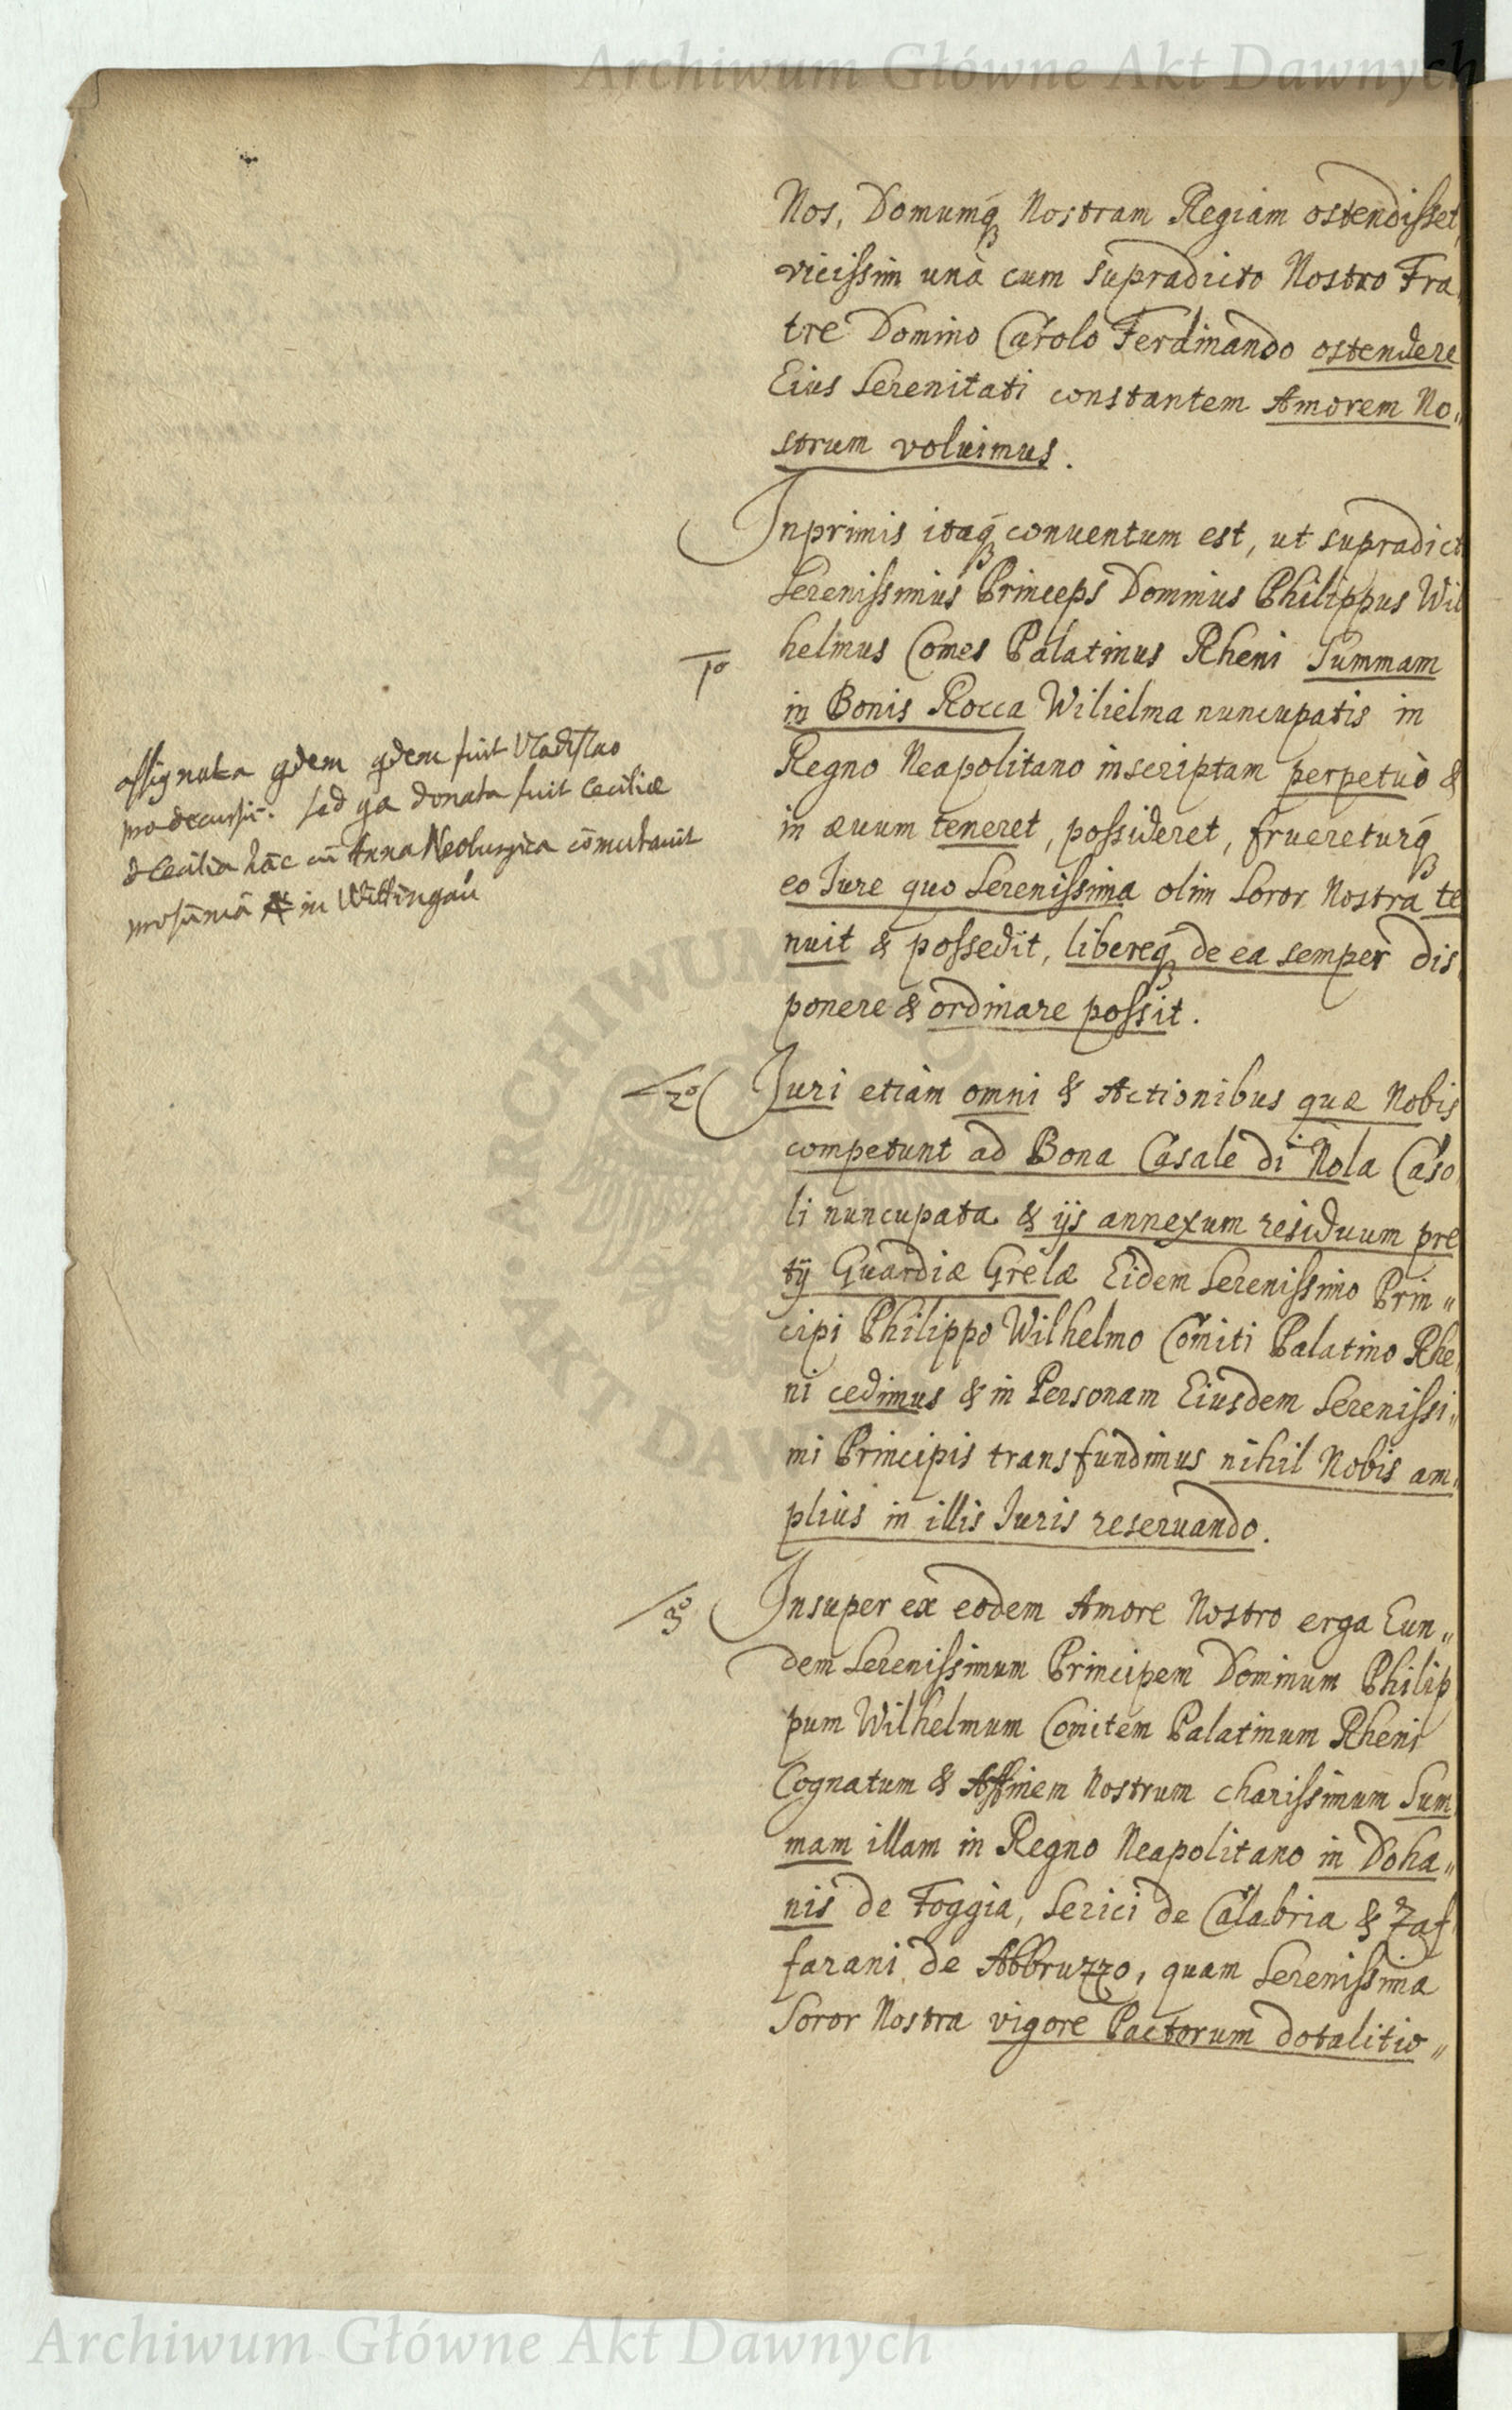 Archiwum Główne Akt Dawnych
Nos, Domumq́ꝫ Nostram Regiam ostendisset,
vicissim unà cum supradicto Nostro Fra,
tre Domino Carolo Ferdinando ostendere
Eius Serenitati constantem Amorem No,
strum voluimus.
Inprimis itaq́ꝫ conuentum est, ut supradict
Serenissimus Princeps Dominus Philippus Wil
helmus Comes Palatinus Rheni Summam
1º
in Bonis Rocca Wilielma nuncupatis in
Regno Neapolitano inscriptam perpetuò &
in æuum teneret, possideret, fruereturq́ꝫ
eo Iure quo Serenissima olim Soror Nostra te
nuit & possedit, libereq́ꝫ de ea semper dis,
ponere & ordinare possit.
assignata qdem qdem fuit Vladislao
pro decursu. sed qa donata fuit Ceciliæ
& Cecilia hāc cū Anna Neoburgica cōmutauit
pro sūma in Wittingau
2º
Iuri etiàm omni & Actionibus quæ Nobis
competunt ad Bona Casale di Nola Caso
li nuncupata & ijs annexum residuum pre
tij Guardiæ Grelæ Eidem Serenissimo Prin„
cipi Philippo Wilhelmo Comiti Palatino Rhe,
ni cedimus & in Personam Eiusdem Serenissi„
mi Principis transfundimus nihil Nobis am„
plius in illis Iuris reseruando.
3º
Insuper ex eodem Amore Nostro erga Eun„
dem Serenissimum Principem Dominum Philip
pum Wilhelmum Comitem Palatinum Rheni
Cognatum & Affinem Nostrum charissimum Sum
mam illam in Regno Neapolitano in Doha„
nis de Foggia, Serici de Calabria & Zaf
farani de Abbruzzo, quam Serenissima
Soror Nostra vigore Pactorum dotalitio„
ARCHIWUM GŁÓWNE AKT DAWNYCH
Archiwum Główne Akt Dawnych